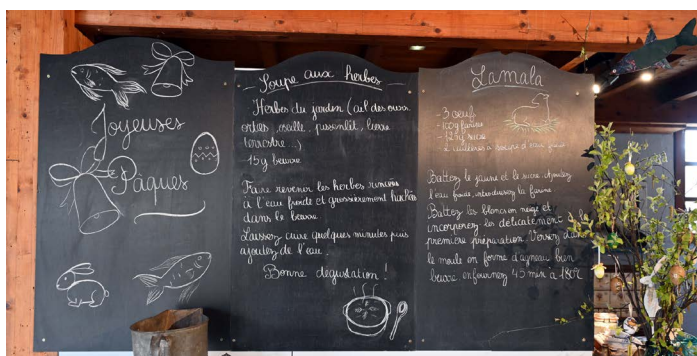 Joyeuses
Pâques
Soupe aux herbes
Herbes du jardin (ail des ours
orties, oseille, pissenlit, lierre
terrestre ...)
15g beurre.
Faire revenir les herbes rincées
à l'eau froide et grossièrement hachées
dans le beurre.
Laissez cuire quelques minutes puis
ajoutez de l'eau.
Bonne dégustation !
Lamala
- 3 oeufs
- 100g farine
- 125g sucre
- 2 cuillères à soupe d'eau
Battez le jaune et le sucre. Ajoutez
l'eau froide, introduisez la farine
Battez les blancs en neige et
incorporez les délicatement à la
première préparation. Versez dans
le moule en forme d'agneau bien
beurré enfournez 45 min à 180°C